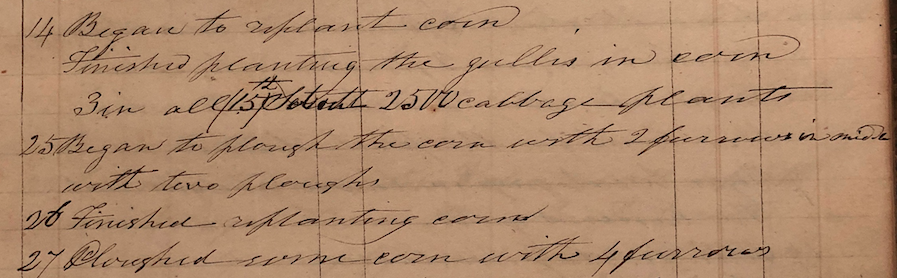 14 Began to replant corn
Finished planting the gullis in corn
3 in all (15th) 2500 cabbage plants
25 Began to plough the corn with 2 furrows in midle
with two ploughs
26 Finished replanting corn
27 Ploughed some corn with 4 furrows